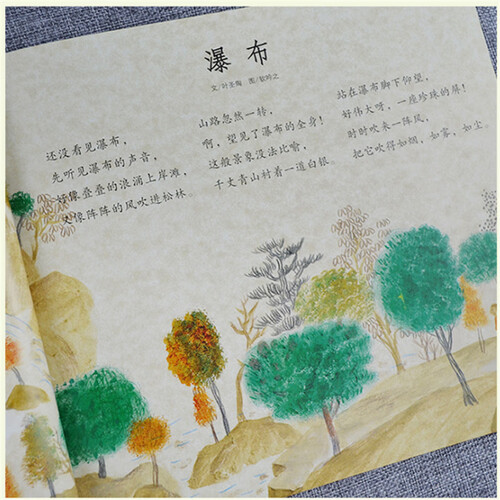 瀑布
文/叶圣陶 图/钦吟之
还没看见瀑布，
先听见瀑布的声音，
好像叠叠的浪涌上岸滩，
又像阵阵的风吹进松林。
山路忽然一转，
啊，望见了瀑布的全身！
这般景象没法比喻，
千丈青山衬着一道白银。
站在瀑布脚下仰望，
好伟大呀，一座珍珠的屏！
时时吹来一阵风，
把它吹得如烟，如雾，如尘。